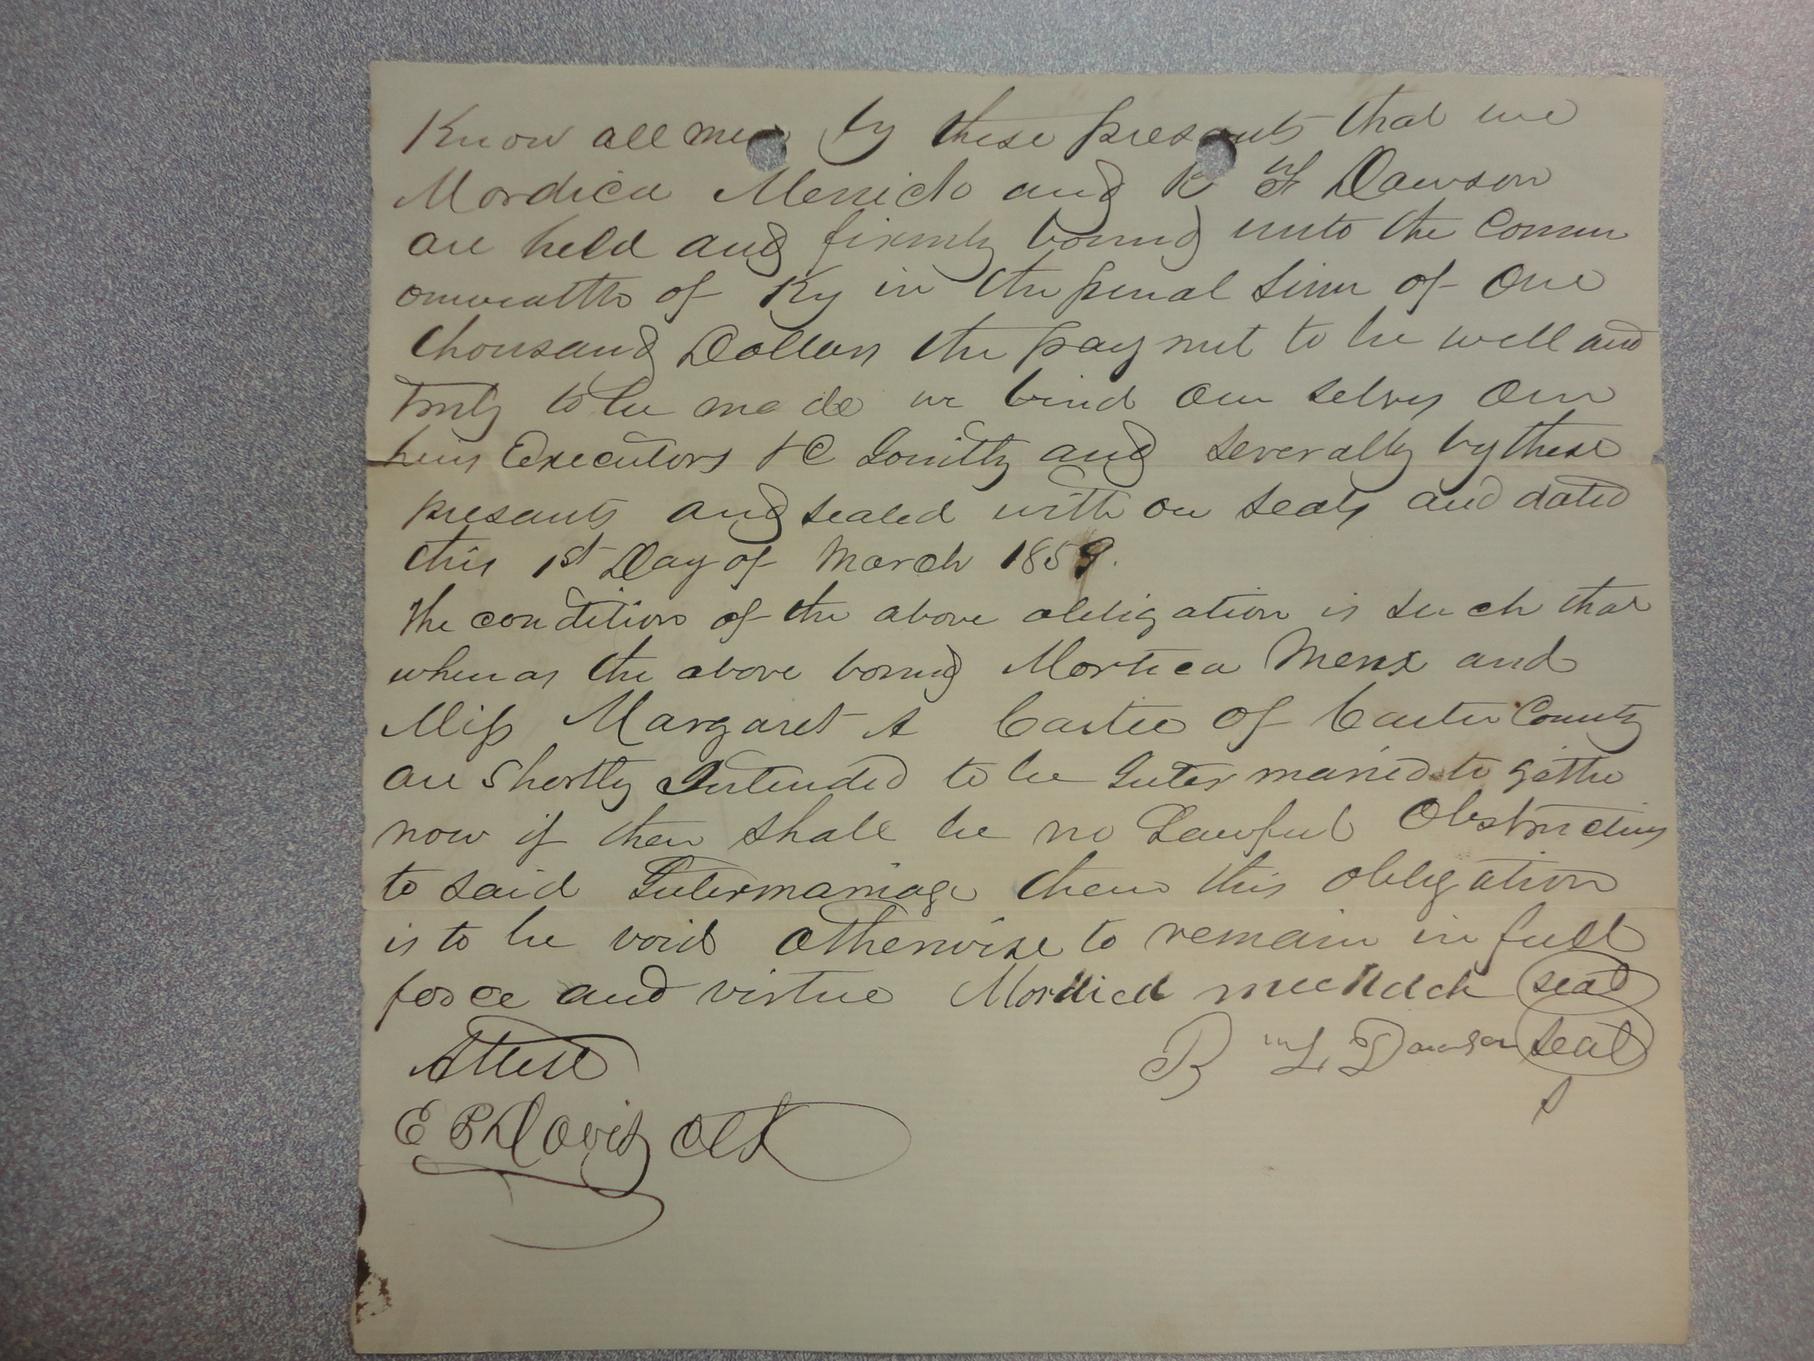 Know all men by these presants that we
Mordica Merrick and B W F Dawson
are held and firmly bound unto the comm
onwealth of Ky in the penal sum of One
thousand Dollars the payment to be well and
truly to be made we bind our selves our
heirs Executors &C Jointly and severally by these
presants and sealed with our seals and dated
this 1st Day of March 1859.
the condition of the above obligation is such that
whereas the above bound Mortica and
Miss Margaret A Castee of Carter County
are shortly Intended to be Inter married to gather
now if there shall be no Lawful Obstructions
to said Intermarriage then this obligation
is to be void otherwise to remain in full
force and virtue Mordica seal
B W L Dawson seal
Attest
E P Davis Clk